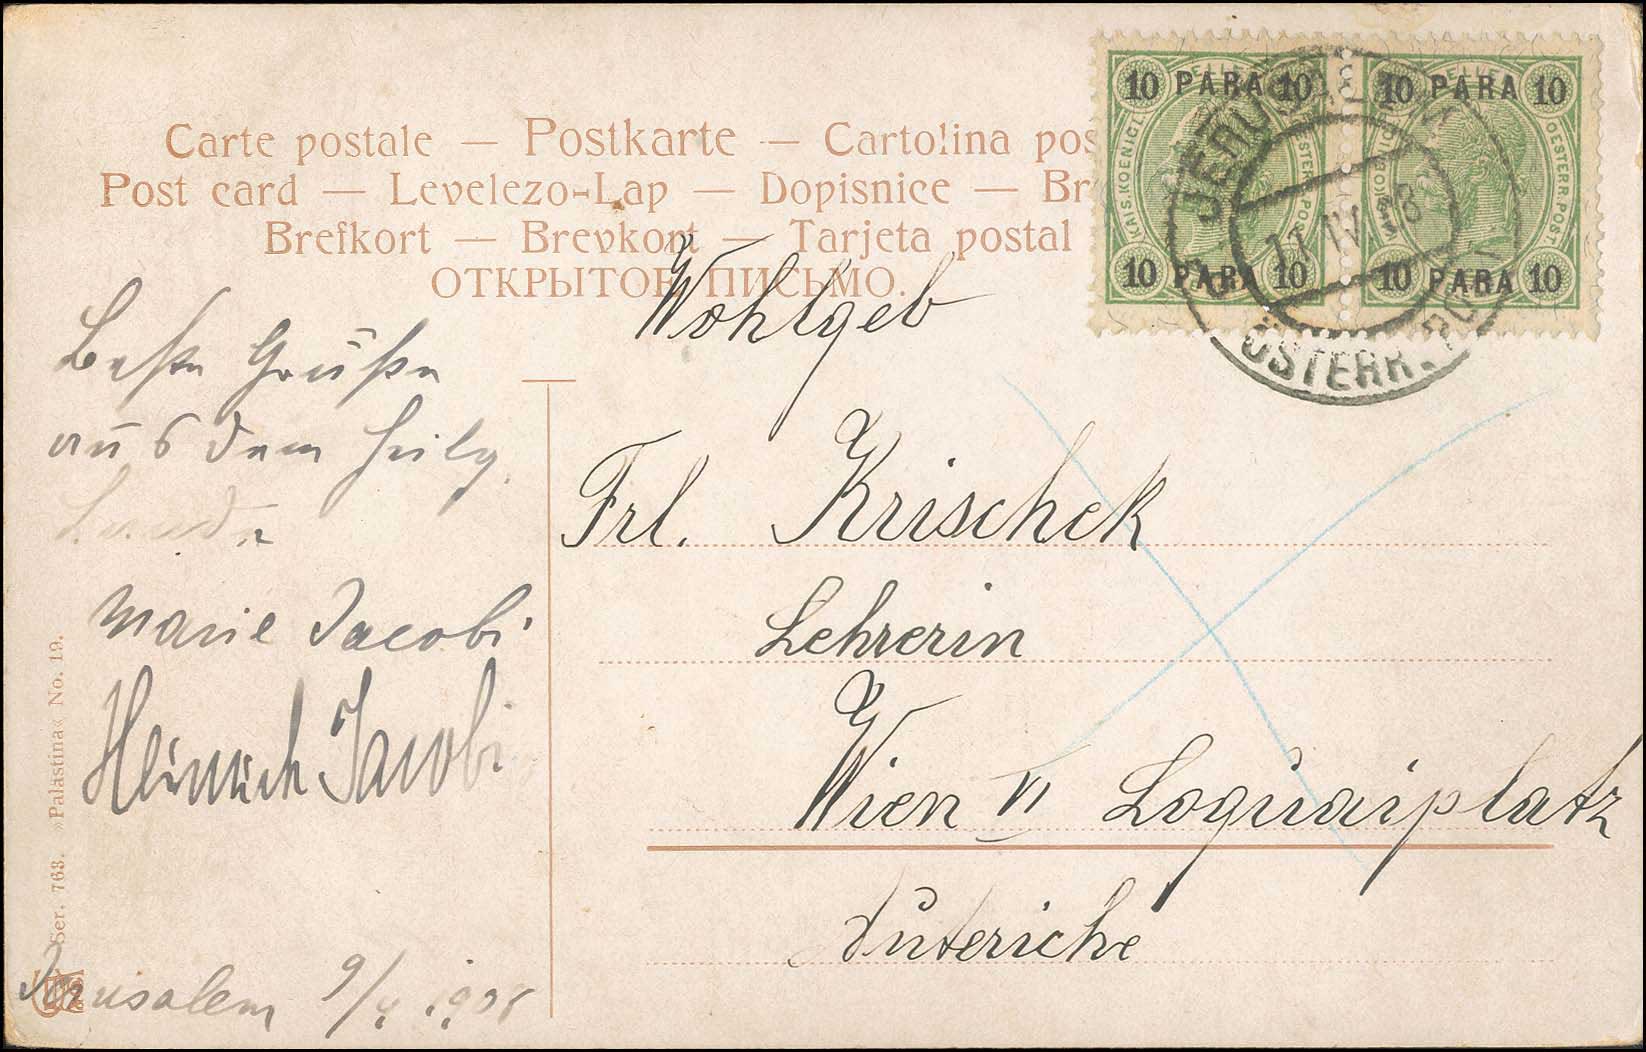 Carte postale — Postkarte — Cartolina pos
Post card — Levelezo-Lap — Dopisnice — Br
Brefkort — Brevkort — Tarjeta postal
ОТКРЫТОЕ ПИСЬМО.
10 PARA 10
10 PARA 10
KAIS. KOENIGL
OESTERR. POST
10 PARA 10
10 PARA 10
OESTERR. POST
JERUSALEM
11 IV 08
ÖSTERR. POST
Wohlgeb
Frl. Krischek
Lehrerin
Wien VI Loquaiplatz
Beste Grüße
aus dem heilg.
Lande
Marie Jacobi
Heinrich Jacobi
Jerusalem 9/4 1908
Ser. 763. »Palästina« No. 19.